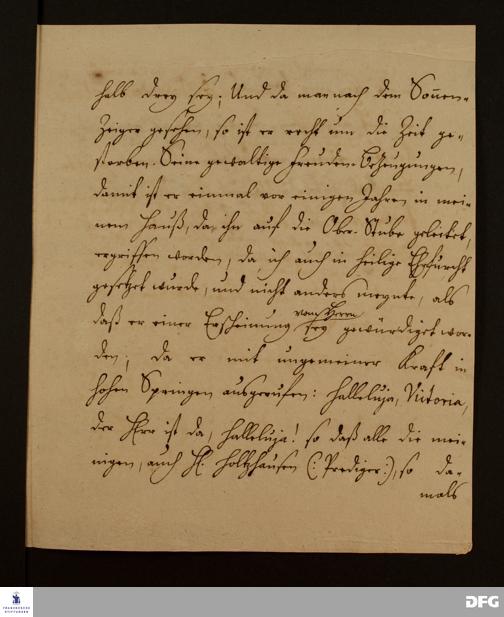 halb drey sey; Und da man nach dem Soñen-
Zeiger gesehen, so ist er recht um die Zeit ge-
storben. Seine gewaltige Freuden-Bezeugungen,
damit ist er einmal vor einigen Jahren in mei-
nem Hauß, da ihn auf die Ober-Stube geleitet,
ergriffen worden, da ich auch in heilige Ehrfurcht
gesetzet wurde, und nicht anders meynte, als
vom Herrn
daß er einer Erscheinung sey gewürdiget wor-
den; da er mit ungemeiner Kraft in
hohen Springen ausgerufen: Halleluja, Victoria,
der Herr ist da, Halleluja! so daß alle die mei-
nigen, auch H. Holtzhausen (: Prediger:), so da-
mals
FRANCKESCHE
STIFTUNGEN
DFG